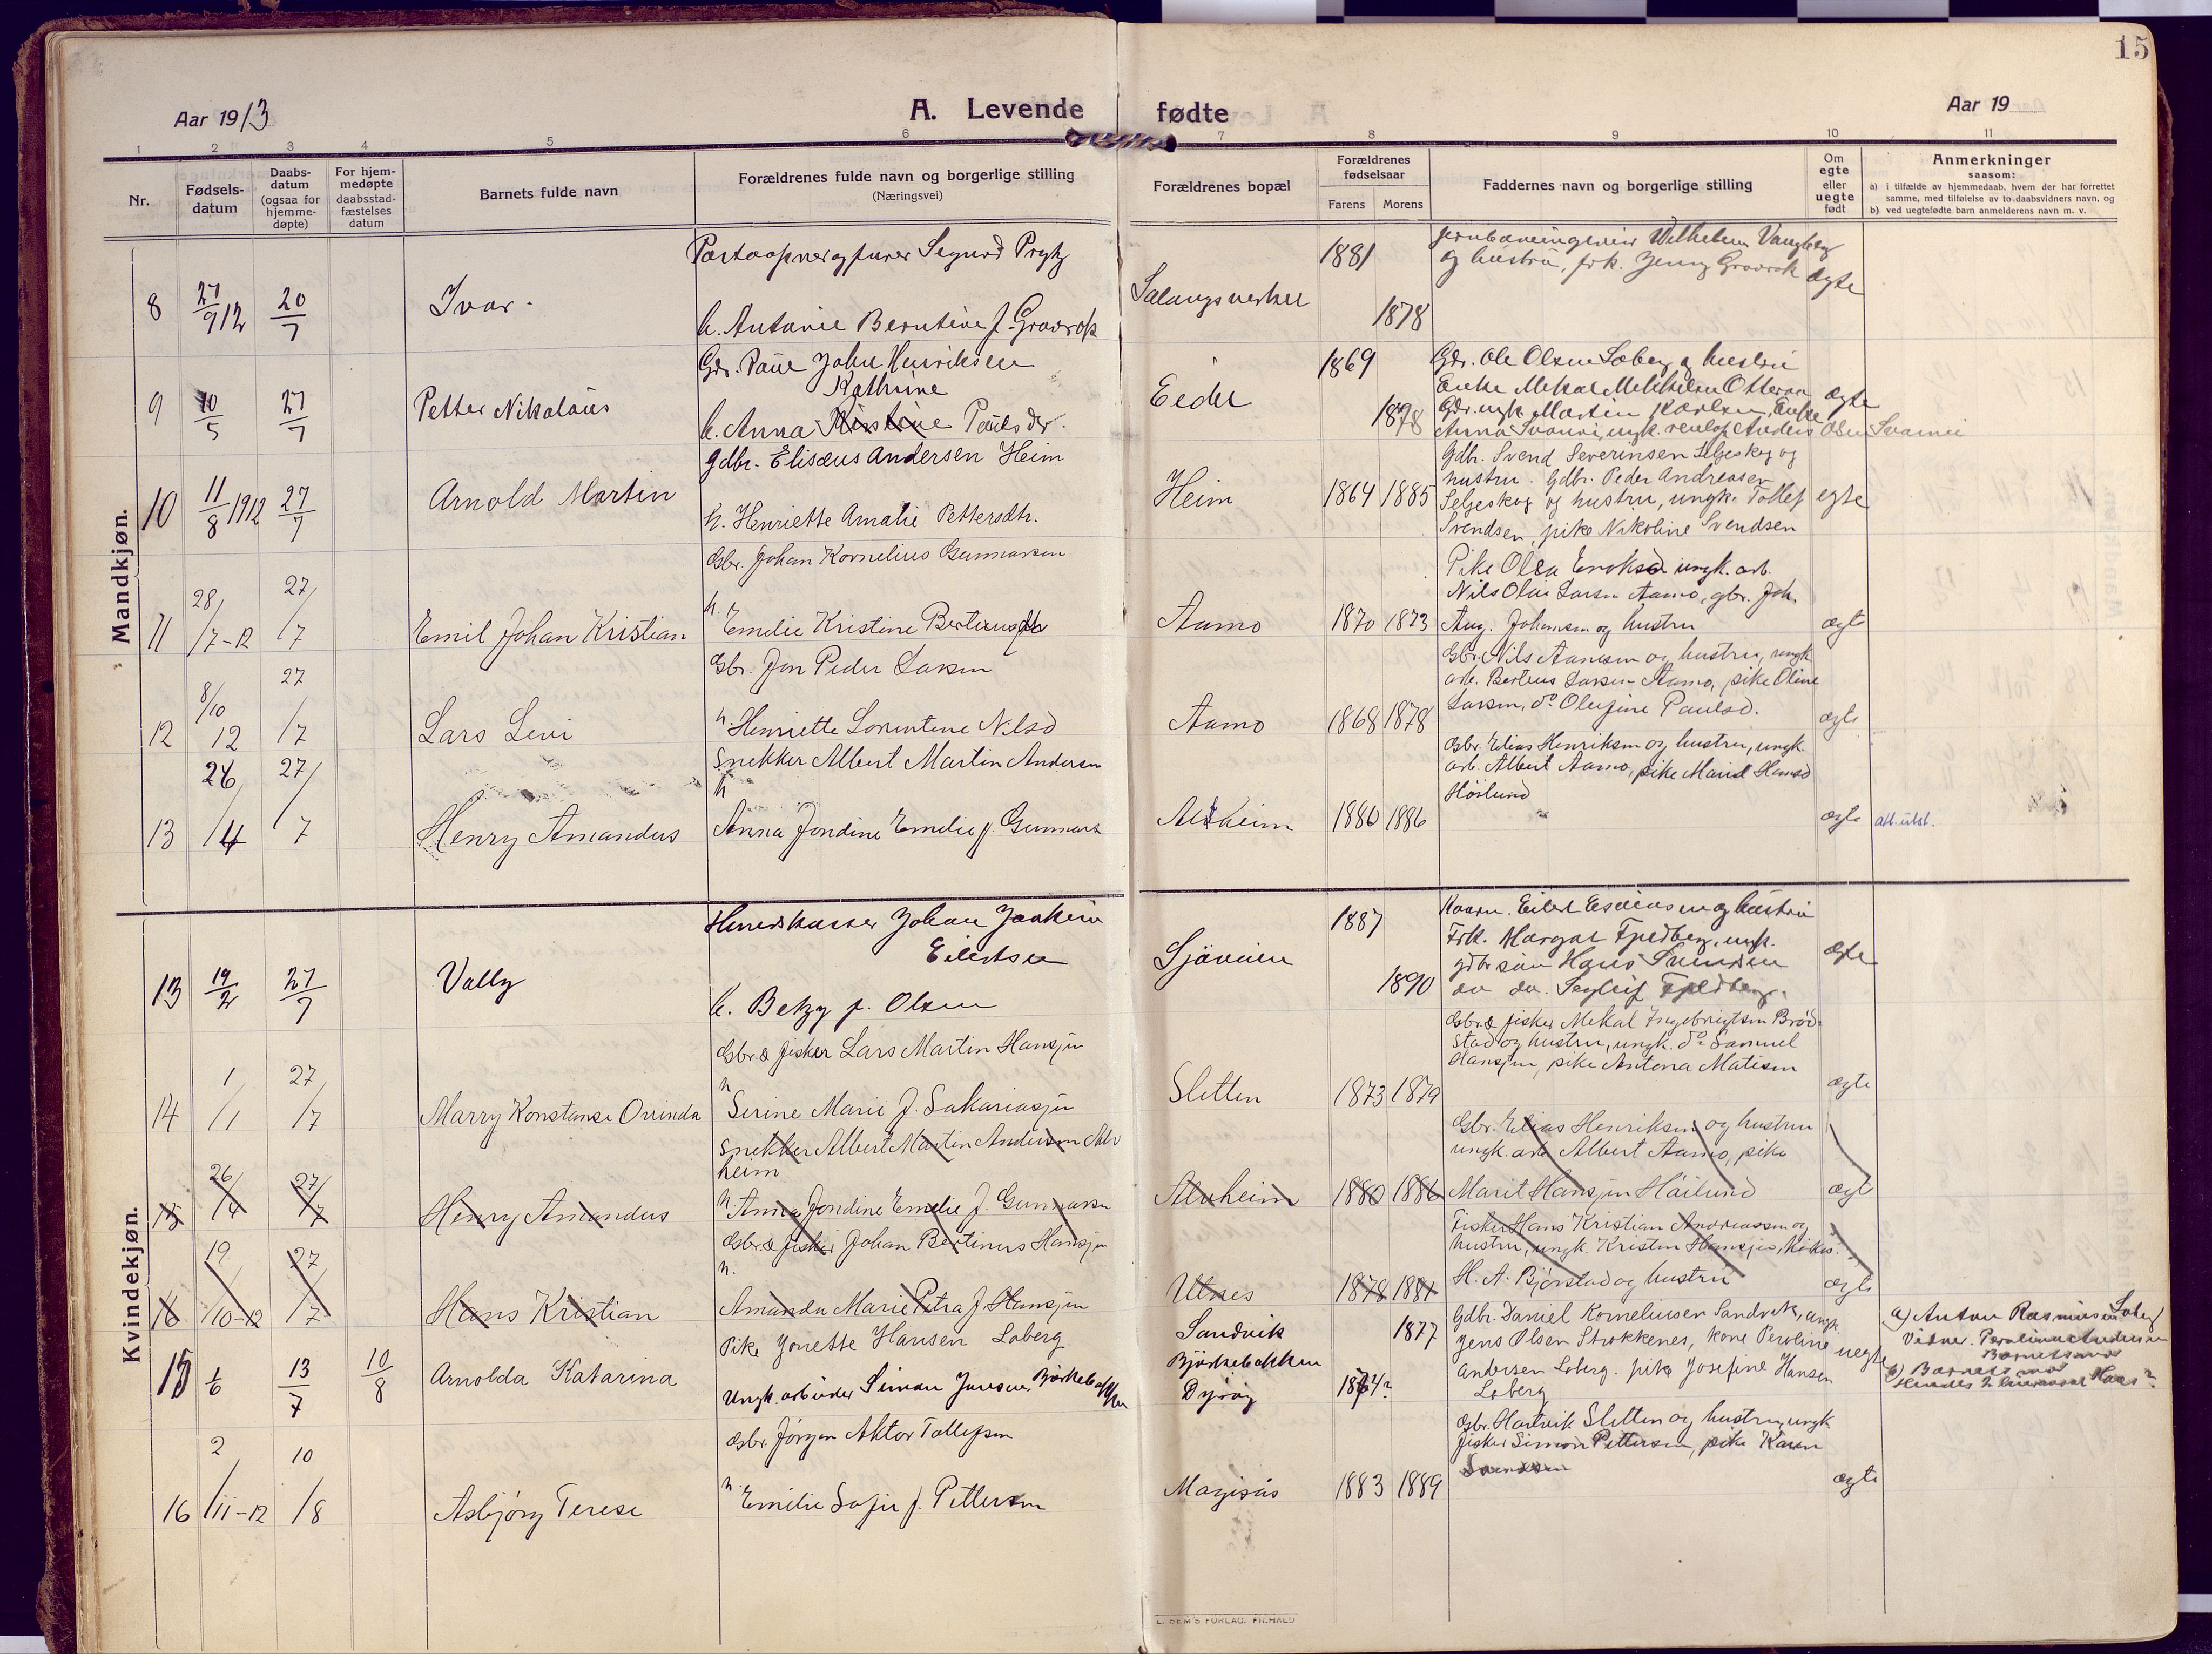 15
Aar 1913
A. Levende fødte
Aar 19
1 2 3 4 5 6 7 8 9 10 11
Nr.
Fødsels-
datum
Daabs-
datum
(ogsaa for
hjemme-
døpte)
For hjem-
medøpte
daabsstad-
fæstelses
datum
Barnets fulde navn
Forældrenes fulde navn og borgerlige stilling
(Næringsvei)
Forældrenes bopæl
Forældrenes
fødselsaar
Farens Morens
Faddernes navn og borgerlige stilling
Om
egte
eller
uegte
født
Anmerkninger
saasom:
a) i tilfælde av hjemmedaab, hvem der har forrettet
samme, med tilføielse av to daabsvidners navn, og
b) ved uegtefødte barn anmelderens navn m. v.
Mandkjøn.
8 27/9 12 20/7 Ivar
Sigurd
h. Antonie Berntine f. Gravrok
Salangsverket 1881 1878
Wilhelm Vangberg
og hustru, frk. Jenny Gravrok
ægte
9 10/5 27/7 Petter Nikolaus
Gdr. Paul John Henriksen
Kathrine
h. Anna Kristine Paulsdr.
1869 1878
Gdr. Ole Olsen Soberg og hustru
Enke
Gdr. ungk. Martin Karlsen, Enke
Anna
ægte
10 11/8 1912 27/7 Arnold Martin
gdbr. Elisæus Andersen Heim
h. Henriette Amalie Pettersdtr.
Heim 1864 1885
Gdbr. Svend Severinsen Seljeskog og
hustru. Gdbr. Peder Andreasen
Seljeskog og hustru, ungk. Tollef
Svendsen, pike Nikoline Svendsen
egte
11 28/7-12 27/7 Emil Johan Kristian
Gbr. Johan Kornelius Gunnarsen
h. Emelie Kristine
Aamo 1870 1873
Pike Olea ungk. arb.
Nils Olai Larsen Aamo, gbr. Joh.
Aug. Johansen og hustru
ægte
12 8/10 12 27/7 Lars Levi
Gbr. Jon Peder Larsen
h. Henriette Lorentine Nilsd
Aamo 1868 1878
Gbr. Nils Aanesen og hustru, ungk
arb. Berteus Larsen Aamo, pike Oline
Larsen, do Olufine Paulsd.
ægte
13 26/4 27/7 Henry Amandus
Snekker Albert Martin Andersen
h
Anna Jondine Emelie f. Gunnars
Alvheim 1880 1886
Gbr. Elias Henriksen og hustru, ungk.
arb. Albert Aamo, pike Marit Hansd
Höilund
ægte att. utst.
Kvindekjøn.
13 19/2 27/7 Vally
Johan Joakim
Eilertsen
h. Betzy f. Olsen
Sjøveien 1887 1890
Eilert Esaiassen og hustru
Frk. Margat Fjeldberg, ungk.
gdbr søn Hans
do do. Fjeldberg.
ægte
14 1/1 27/7 Marry Konstanse Ovinda
Gbr. & fisker Lars Martin Hansjen
h
Serine Marie f. Sakariasjen
Sletten 1873 1879
Gbr. & fisker Mekal Ingebrigtsen Bröd-
stad og hustru, ungk. do Samuel
Hansjen, pike Antona Matisen
ægte
15 26/4 27/7 Henry Amandus
Snekker Albert Martin Andersen Alv
heim
h Anna Jondine Emelie f. Gunnarsen
Alvheim 1880 1886
Gbr. Elias Henriksen og hustru
ungk. arb Albert Aamo, pike
Marit Hansjen Höilund
ægt
16 19/10-12 27/7 Hans Kristian
Gbr. & fisker Johan Bertinus Hansjen
h.
Amanda Marie Petra f. Hansjen
Utnes 1878 1881
Fisker Hans Kristian Andreassen og
hustru, ungk. Kristen Hansjen,
H. A. Bjørstad og hustru
ægte
15 1/6 13/7 10/8 Arnolda Katarina
Pike Jonette Hansen Loberg
Ungk. arbeider Simon Jensen, Bjørkebakken
Sandvik
Bjørkebakken
Dyrøy
1877
1874?
Gdbr. Daniel Korneliusen Sandvik, ungk.
Jens Olsen Strokkenes, kone Peroline
Andersen Loberg. pike Josefine Hansen
Loberg
uegte
a) Anton Rasmussen Loberg
Vidne. Peroline Andersen
Barnets mor
b) Barnets mor
16 2/11-12 10/8 Asbjörg Terese
Gbr. Jörgen Aktor Tollefsen
h. Emilie Sofie f. Pettersen
1883 1889
Gbr. Hartvik Sletten og hustru, ungk
fisker Simon Pettersen, pike Karen
Svendsen
ægte
E. SEM'S FORLAG. FR.HALD